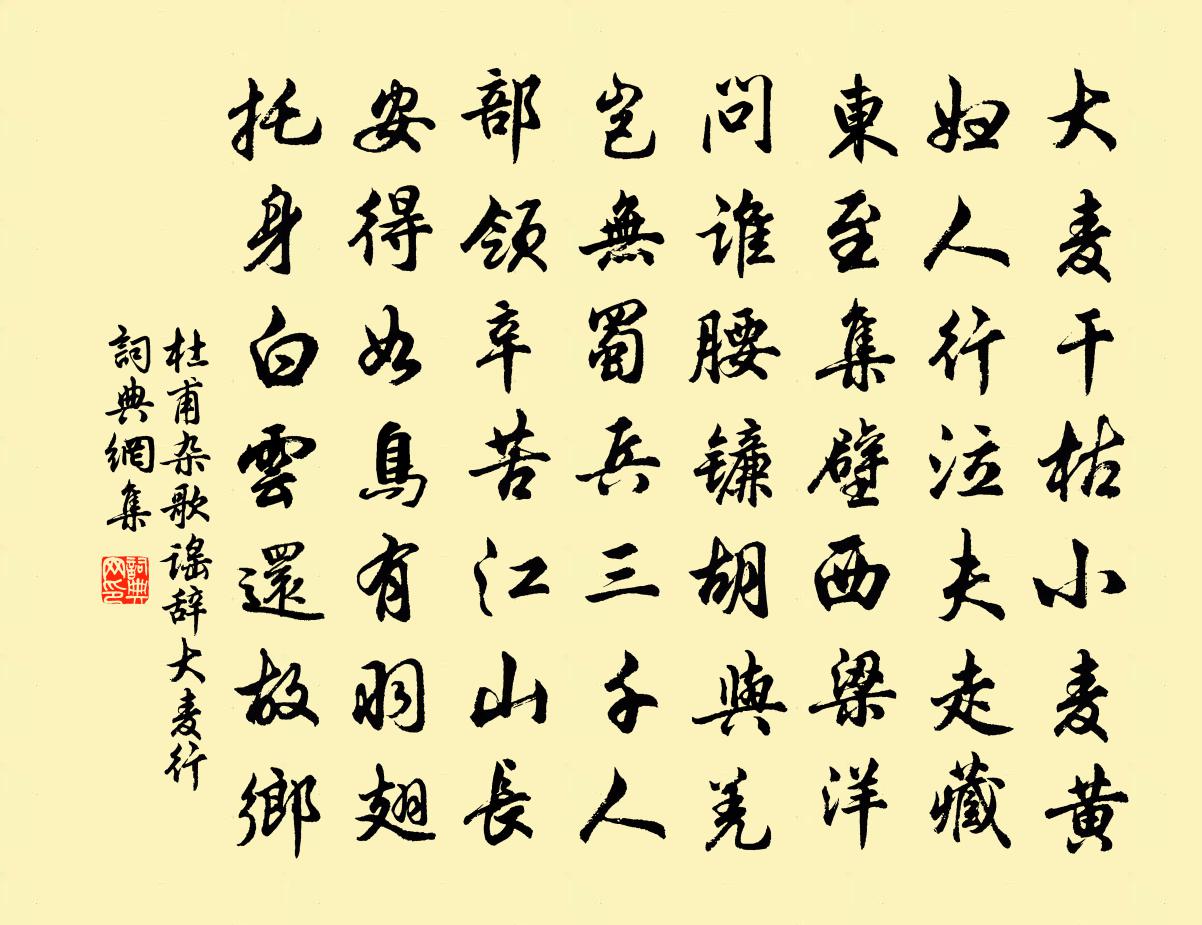 大麦干枯小麦黄
妇人行泣夫走藏
東至集壁西梁洋
问谁腰镰胡與羌
岂無蜀兵三千人
部领辛苦江山長
安得如鳥有羽翅
托身白雲還故鄉
杜甫杂歌謡辞大麦行
詞典網集
詞典
网印